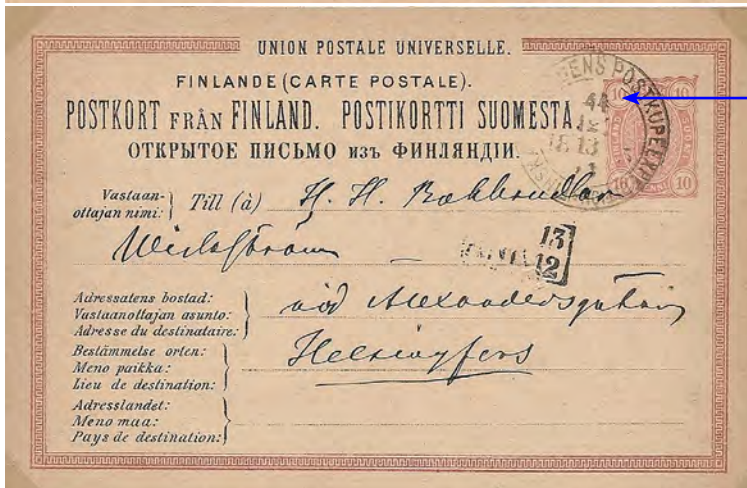 UNION POSTALE UNIVERSELLE.
FINLANDE (CARTE POSTALE).
POSTKORT FRÅN FINLAND. POSTIKORTTI SUOMESTA.
ОТКРЫТОЕ ПИСЬМО изъ ФИНЛЯНДІИ.
10 10
10 10
44
18 13
Vastaan-
ottajan nimi:
Till (à) H. H.
13
12
Adressatens bostad:
Vastaanottajan asunto:
Adresse du destinataire:
vid
Bestämmelse orten:
Meno paikka:
Lieu de destination:
Helsingfors
Adresslandet:
Meno maa:
Pays de destination: